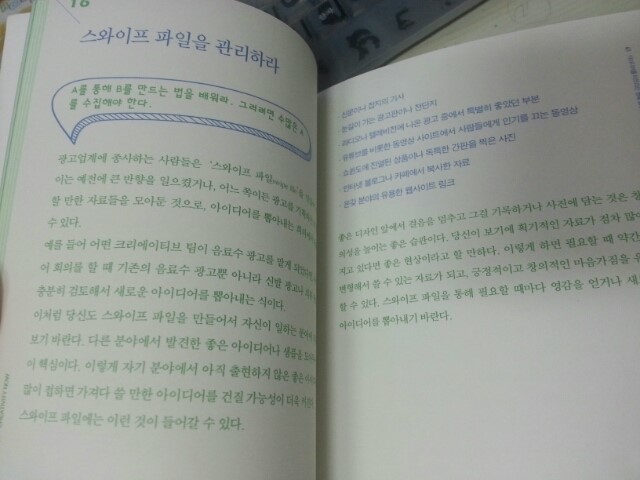 16
스와이프 파일을 관리하라
A를 통해 B를 만드는 법을 배워라. 그러려면 수많은 A
를 수집해야 한다.
광고업계에 종사하는 사람들은 '스와이프 파일
이는 예전에 큰 반향을 일으켰거나, 어느 쪽이든 광고를
할 만한 자료들을 모아둔 것으로, 아이디어를 뽑아내는
수 있다.
예를 들어 어떤 크리에이티브 팀이 음료수 광고를 맡게
어 회의를 할 때 기존의 음료수 광고뿐 아니라 신발 광고나
충분히 검토해서 새로운 아이디어를 뽑아내는 식이다.
이처럼 당신도 스와이프 파일을 만들어서 자신이 일하는
보기 바란다. 다른 분야에서 발견한 좋은 아이디어나 샘플을
이 핵심이다. 이렇게 자기 분야에서 아직 출현하지 않은 좋은
많이 접하면 가져다 쓸 만한 아이디어를 건질 가능성이 더욱
스와이프 파일에는 이런 것이 들어갈 수 있다.
· 신문이나 잡지의 기사
· 눈길이 가는 광고판이나 전단지
· 라디오나 텔레비전에 나온 광고 중에서 특별히 좋았던 부분
· 유튜브를 비롯한 동영상 사이트에서 사람들에게 인기를 끄는 동영상
· 쇼윈도에 진열된 상품이나 독특한 간판을 찍은 사진
· 인터넷 블로그나 카페에서 복사한 자료
· 온갖 분야의 유용한 웹사이트 링크
좋은 디자인 앞에서 걸음을 멈추고 그걸 기록하거나 사진에 담는 것은 창
의성을 높이는 좋은 습관이다. 당신이 보기에 획기적인 자료가 점차 많
지고 있다면 좋은 현상이라고 할 만하다. 이렇게 하면 필요할 때 약간
변형해서 쓸 수 있는 자료가 되고, 긍정적이고 창의적인 마음가짐을 유
할 수 있다. 스와이프 파일을 통해 필요할 때마다 영감을 얻거나 새
아이디어를 뽑아내기 바란다.